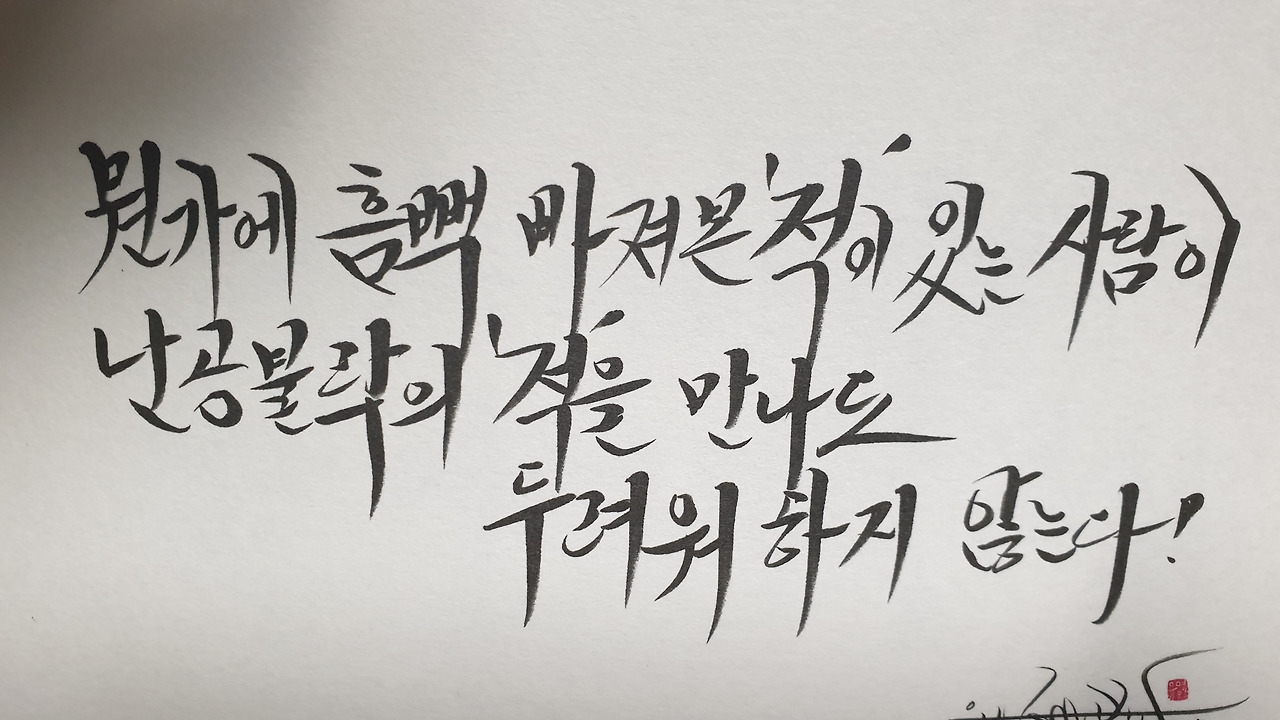 뭔가에 흠뻑 빠져본 '적'이 있는 사람이
난공불락의 '적'을 만나도
두려워 하지 않는다!